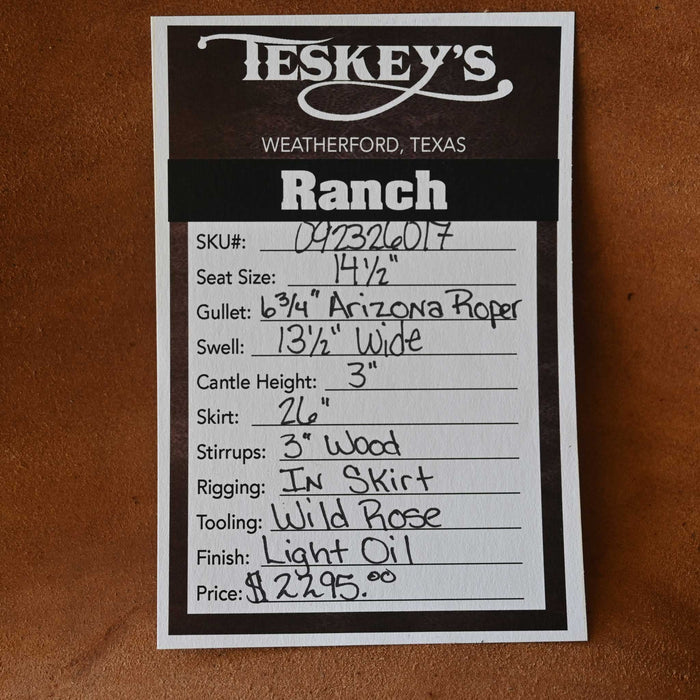 TESKEY'S
WEATHERFORD, TEXAS
Ranch
SKU#: 092326017
Seat Size: 14 1/2"
Gullet: 6 3/4" Arizona Roper
Swell: 13 1/2" Wide
Cantle Height: 3"
Skirt: 26"
Stirrups: 3" Wood
Rigging: In Skirt
Tooling: Wild Rose
Finish: Light Oil
Price: $2295.00